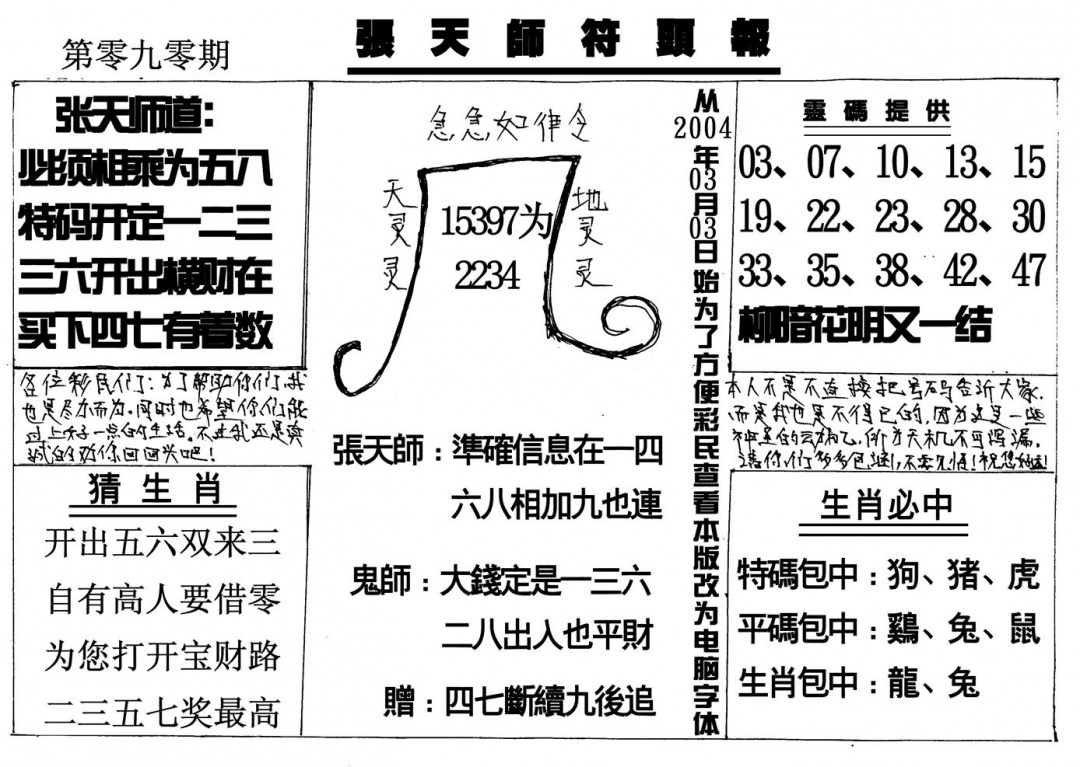 第零九零期
張天師符頭報
张天师道：
必须相乘为五八
特码开定一二三
三六开出横财在
买下四七有着数
各位彩民们：为了帮助你们，我
也是尽力而为。同时也希望你们能
过上好一点的生活。不过我还是真
诚的劝你回回头吧！
猜生肖
开出五六双来三
自有高人要借零
为您打开宝财路
二三五七奖最高
急急如律令
天灵灵
地灵灵
15397为
2234
張天師：準確信息在一四
六八相加九也連
鬼師：大錢定是一三六
二八出入也平財
贈：四七斷續九後追
从2004年03月03日始为了方便彩民查看本版改为电脑字体
靈碼提供
03、07、10、13、15
19、22、23、28、30
33、35、38、42、47
柳暗花明又一结
本人不是不直接把号码告诉大家，
而是我也是不得已的，因为这是一些
神圣的天机，天机不可泄漏。
请你们多多包涵，不要见怪！祝您
生肖必中
特碼包中：狗、猪、虎
平碼包中：鷄、兔、鼠
生肖包中：龍、兔